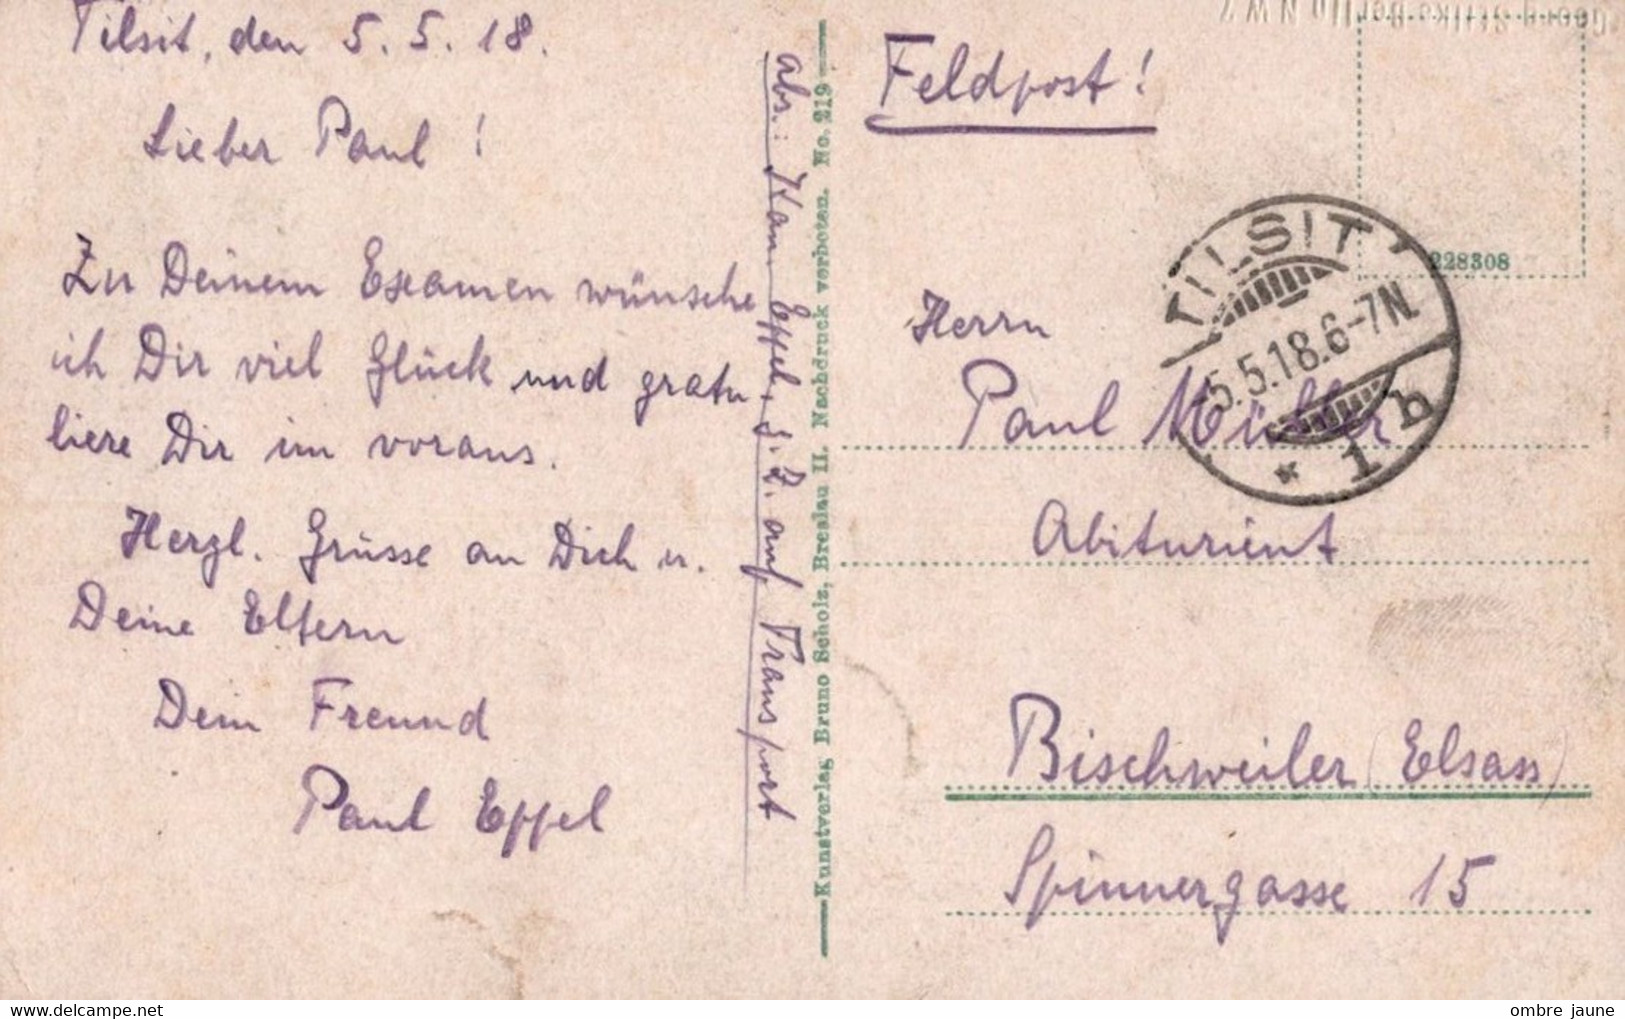 Tilsit, den 5. 5. 18.
Lieber Paul!
Zu Deinem Examen wünsche
ich Dir viel Glück und gratu-
liere Dir im voraus.
Herzl. Grüsse an Dich u.
Deine Eltern
Dein Freund
Paul Eppel
Abs.: Kan. Eppel z. Z. auf Transport
Kunstverlag Bruno Scholz, Breslau II. Nachdruck verboten. No. 219
Berlin NW7
Feldpost!
228308
TILSIT
5.5.18.6-7N.
* 1 b
Herrn
Paul Müller
Abiturient
Bischweiler (Elsass)
Spinnergasse 15
delcampe.net
ombre jaune